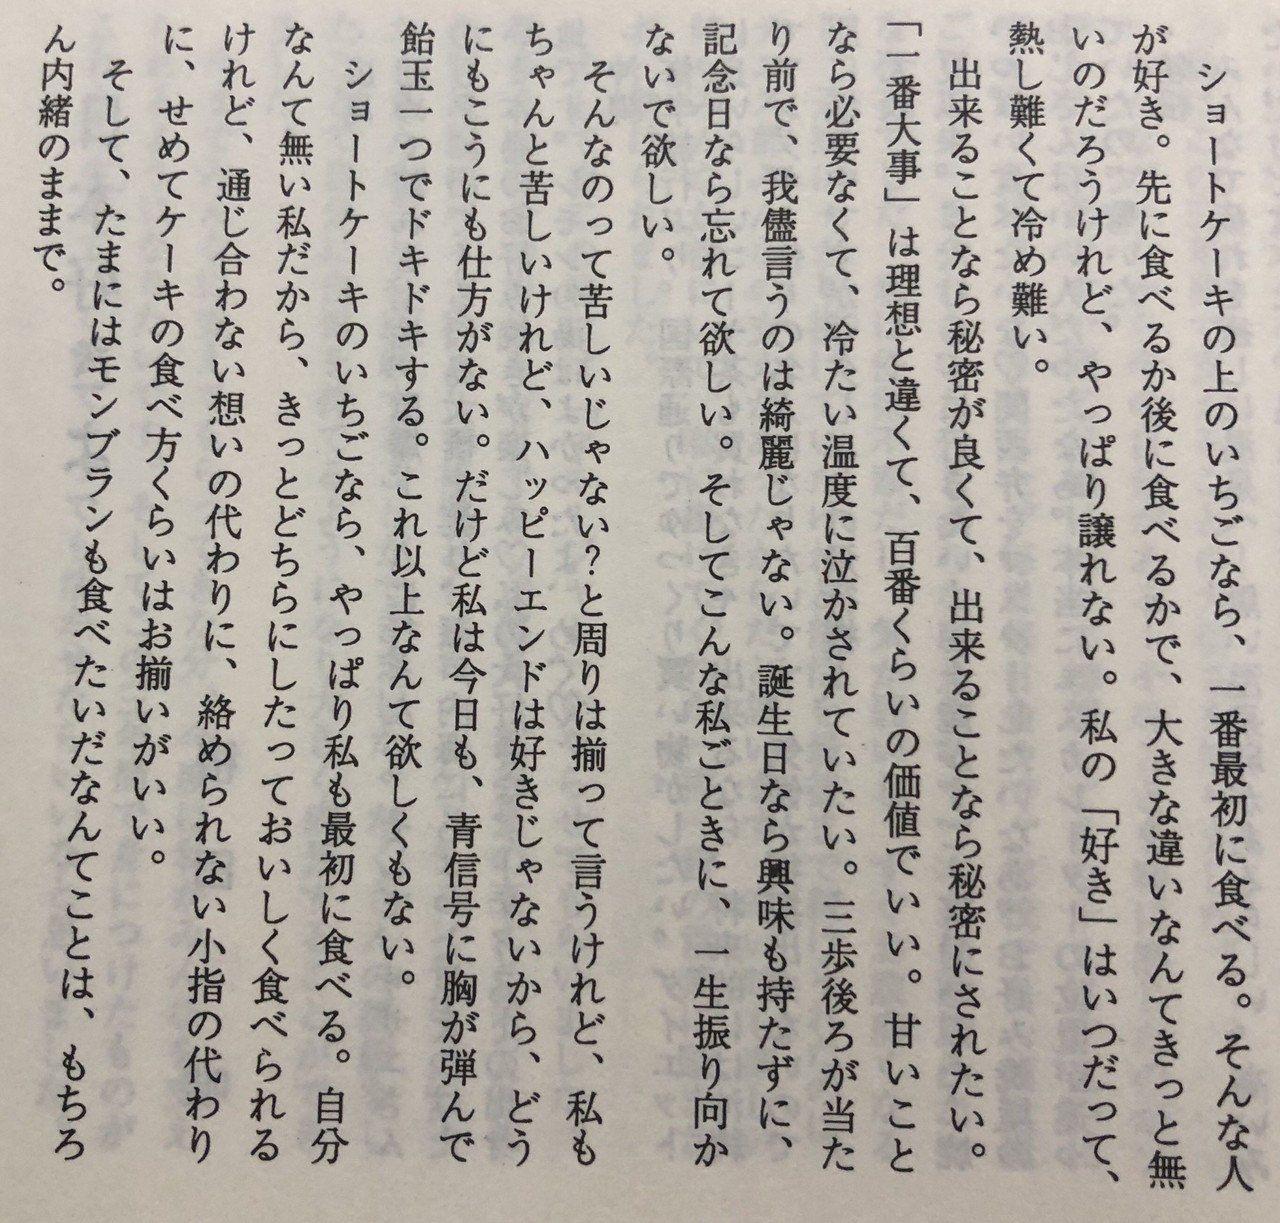 ショートケーキの上のいちごなら、一番最初に食べる。そんな人
が好き。先に食べるか後に食べるかで、大きな違いなんてきっと無
いのだろうけれど、やっぱり譲れない。私の「好き」はいつだって、
熱し難くて冷め難い。
出来ることなら秘密が良くて、出来ることなら秘密にされたい。
「一番大事」は理想と違くて、百番くらいの価値でいい。甘いこと
なら必要なくて、冷たい温度に泣かされていたい。三歩後ろが当た
り前で、我儘言うのは綺麗じゃない。誕生日なら興味も持たずに、
記念日なら忘れて欲しい。そしてこんな私ごときに、一生振り向か
ないで欲しい。
そんなのって苦しいじゃない？と周りは揃って言うけれど、私も
ちゃんと苦しいけれど、ハッピーエンドは好きじゃないから、どう
にもこうにも仕方がない。だけど私は今日も、青信号に胸が弾んで
飴玉一つでドキドキする。これ以上なんて欲しくもない。
ショートケーキのいちごなら、やっぱり私も最初に食べる。自分
なんて無い私だから、きっとどちらにしたっておいしく食べられる
けれど、通じ合わない想いの代わりに、絡められない小指の代わり
に、せめてケーキの食べ方くらいはお揃いがいい。
そして、たまにはモンブランも食べたいだなんてことは、もちろ
ん内緒のままで。